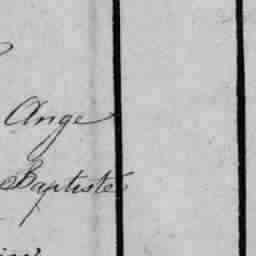 Ange
Baptiste